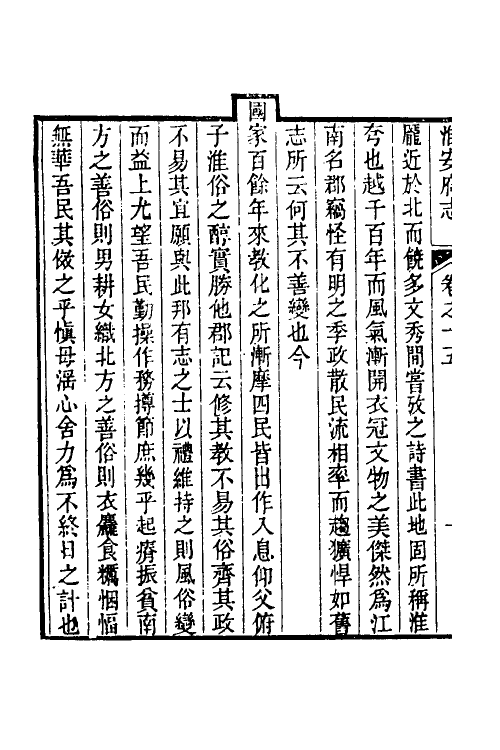 淮安府志 卷之十五 一
龐近於北而饒多文秀間嘗攷之詩書此地固所稱淮
夸也越千百年而風氣漸開衣冠文物之美傑然為江
南名郡竊怪有明之季政散民流相率而趨獷悍如舊
志所云何其不善變也今
國家百餘年來教化之所漸摩四民皆出作入息仰父俯
子淮俗之醇實勝他郡記云修其教不易其俗齊其政
不易其宜願與此邦有志之士以禮維持之則風俗變
而益上尤望吾民勤操作務撙節庶幾乎起瘠振貧南
方之善俗則男耕女織北方之善俗則衣麤食糲悃愊
無華吾民其倣之乎慎毋滛心舍力為不終日之計也